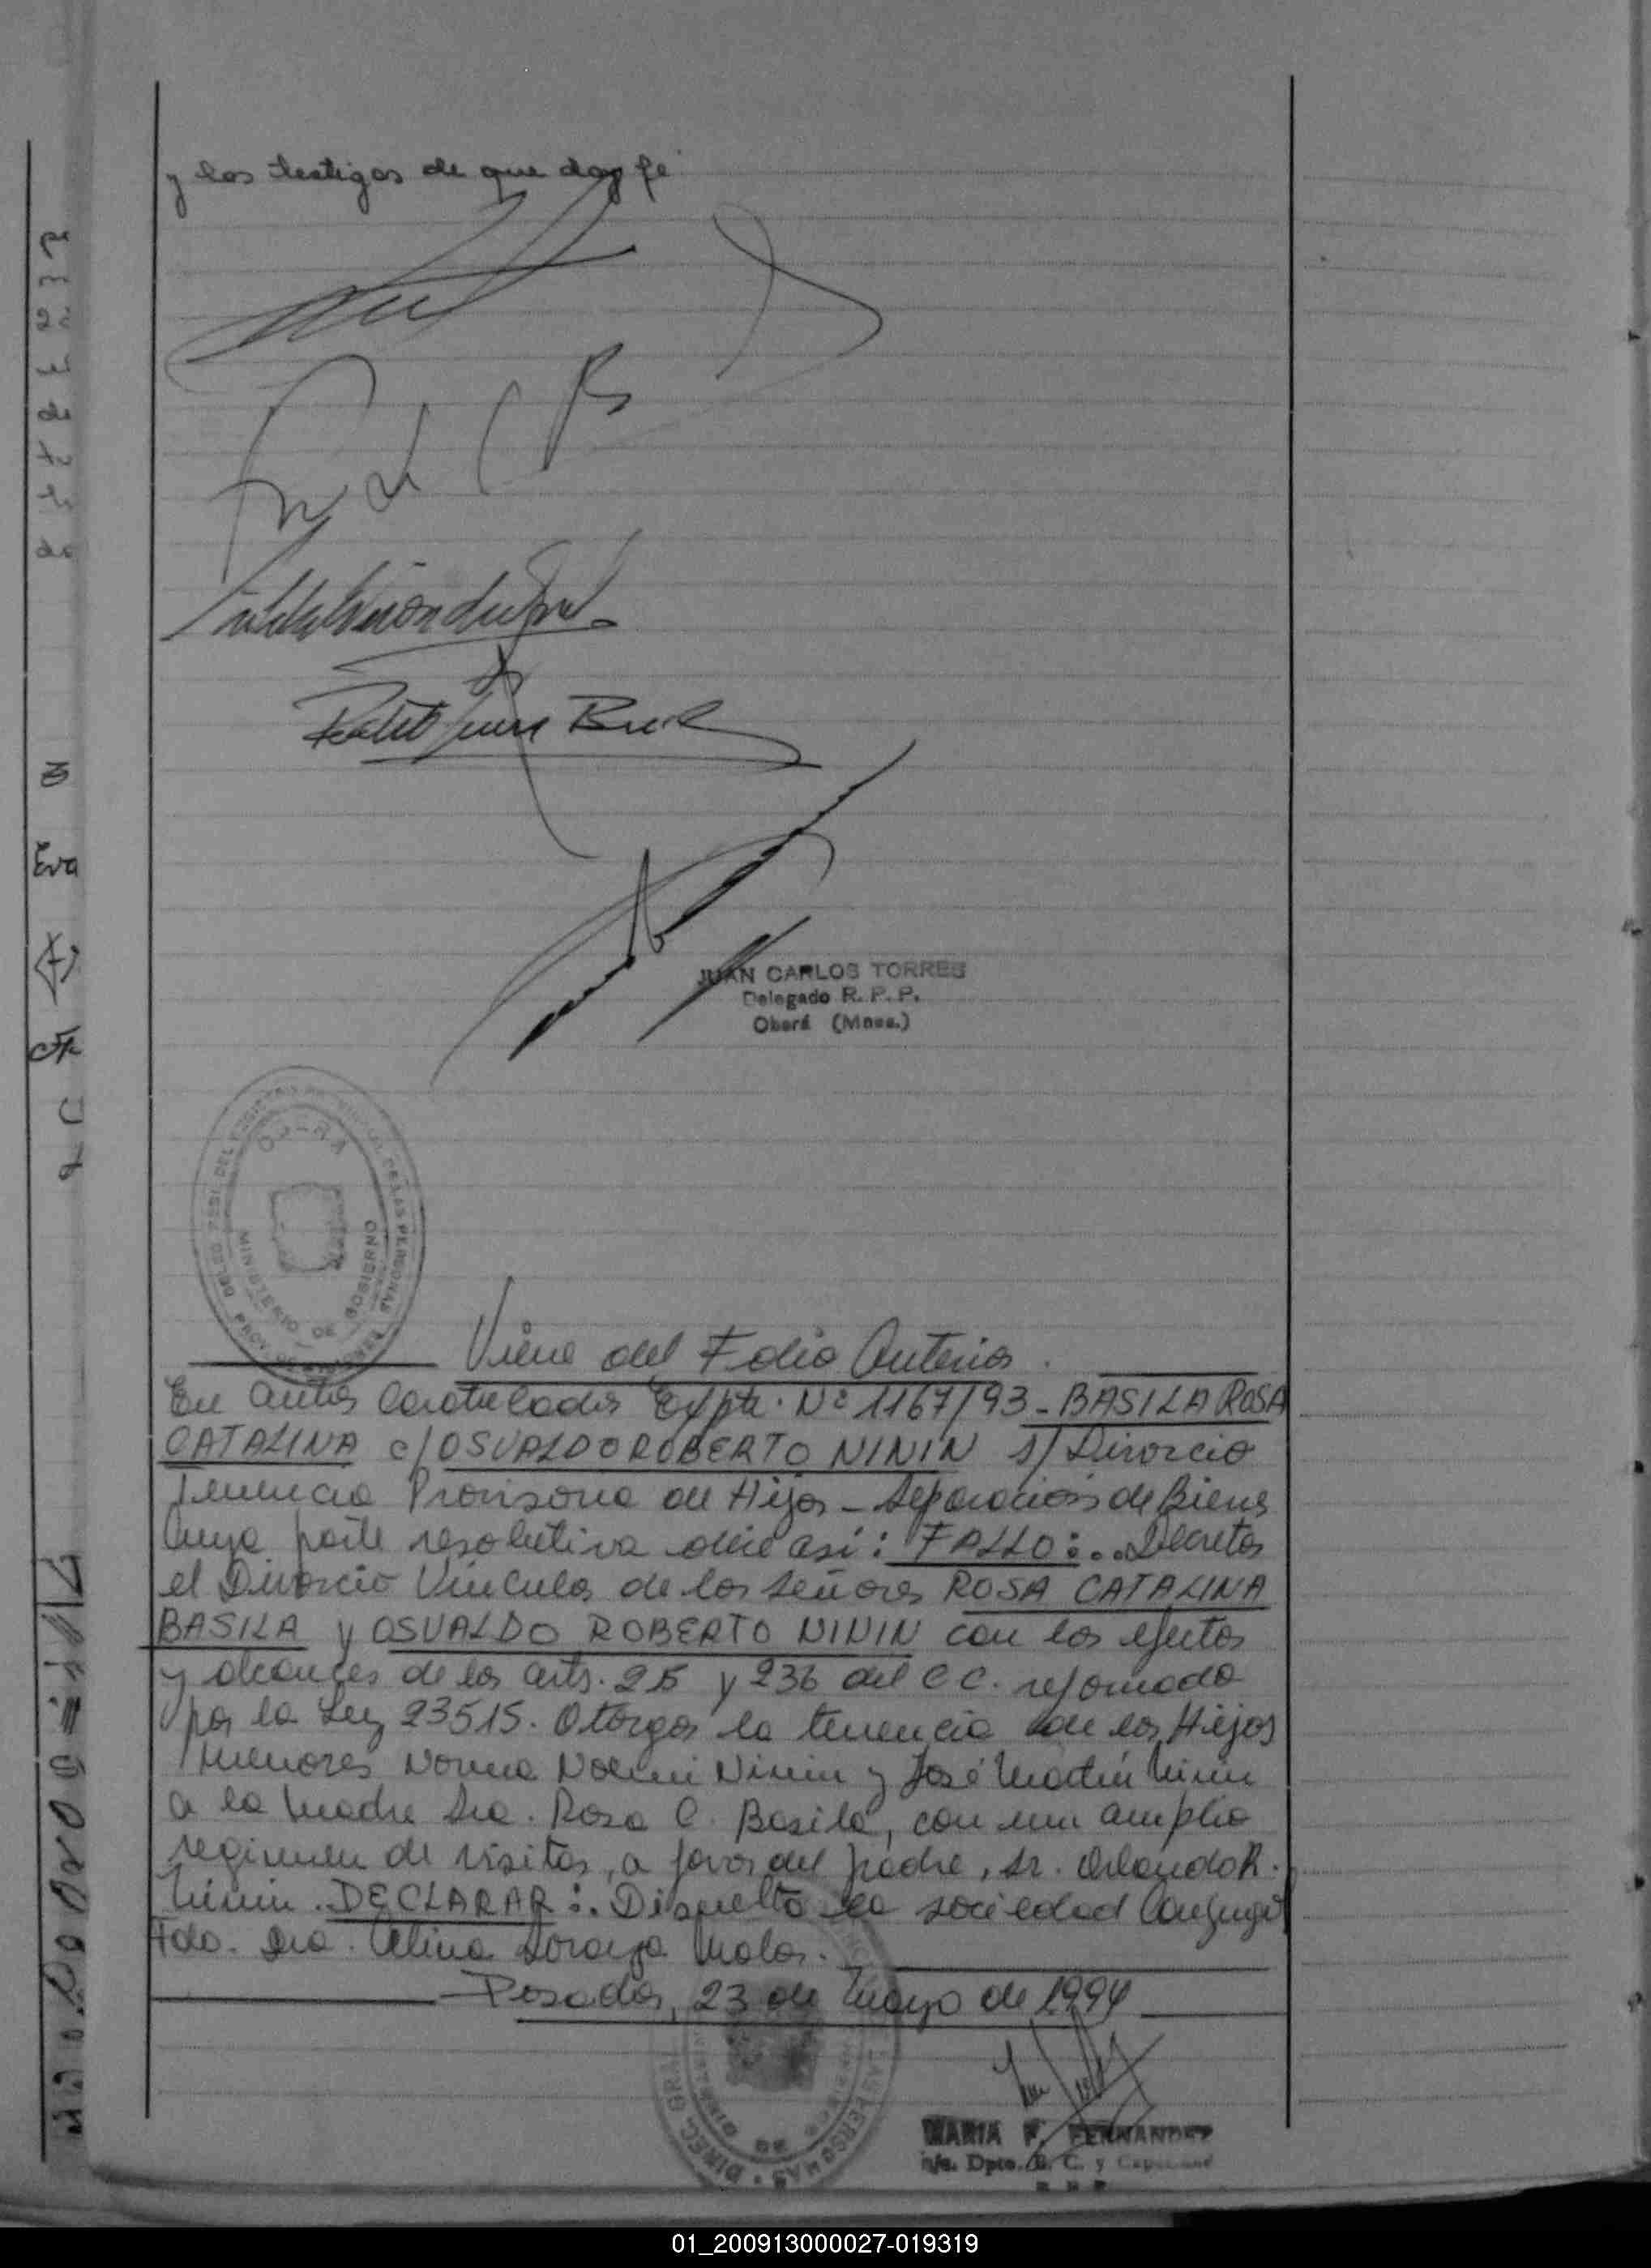 y los testigos de que doy fe
JUAN CARLOS TORRES
Delegado R. P. P.
Oberá (Mnes.)
MINISTERIO DE GOBIERNO
Viene del Folio Anterior.
En autos caratulados Expte. Nº 1167/93 - BASILA ROSA
CATALINA c/ OSVALDO ROBERTO NININ s/ Divorcio
Tenencia Provisoria de Hijos - Separación de Bienes
Cuya parte resolutiva dice así: FALLO:.. Decretar
el Divorcio Vincular de los señores ROSA CATALINA
BASILA y OSVALDO ROBERTO NININ con los efectos
y alcances de los arts. 25 y 236 del C C. reformado
por la Ley 23515. Otorgar la tenencia de los Hijos
menores Norma Noemi Ninin y José Martín Ninin
a la madre Sra. Rosa C. Basila, con un amplio
regimen de visitas, a favor del padre, Sr. Orlando R.
Ninin. DECLARAR:. Disuelta la sociedad Conyugal
Fdo. Dra. Alina
Posadas, 23 de Mayo de 1994
MARIA F. FERNANDEZ
Dpto. C. y
01_200913000027-019319